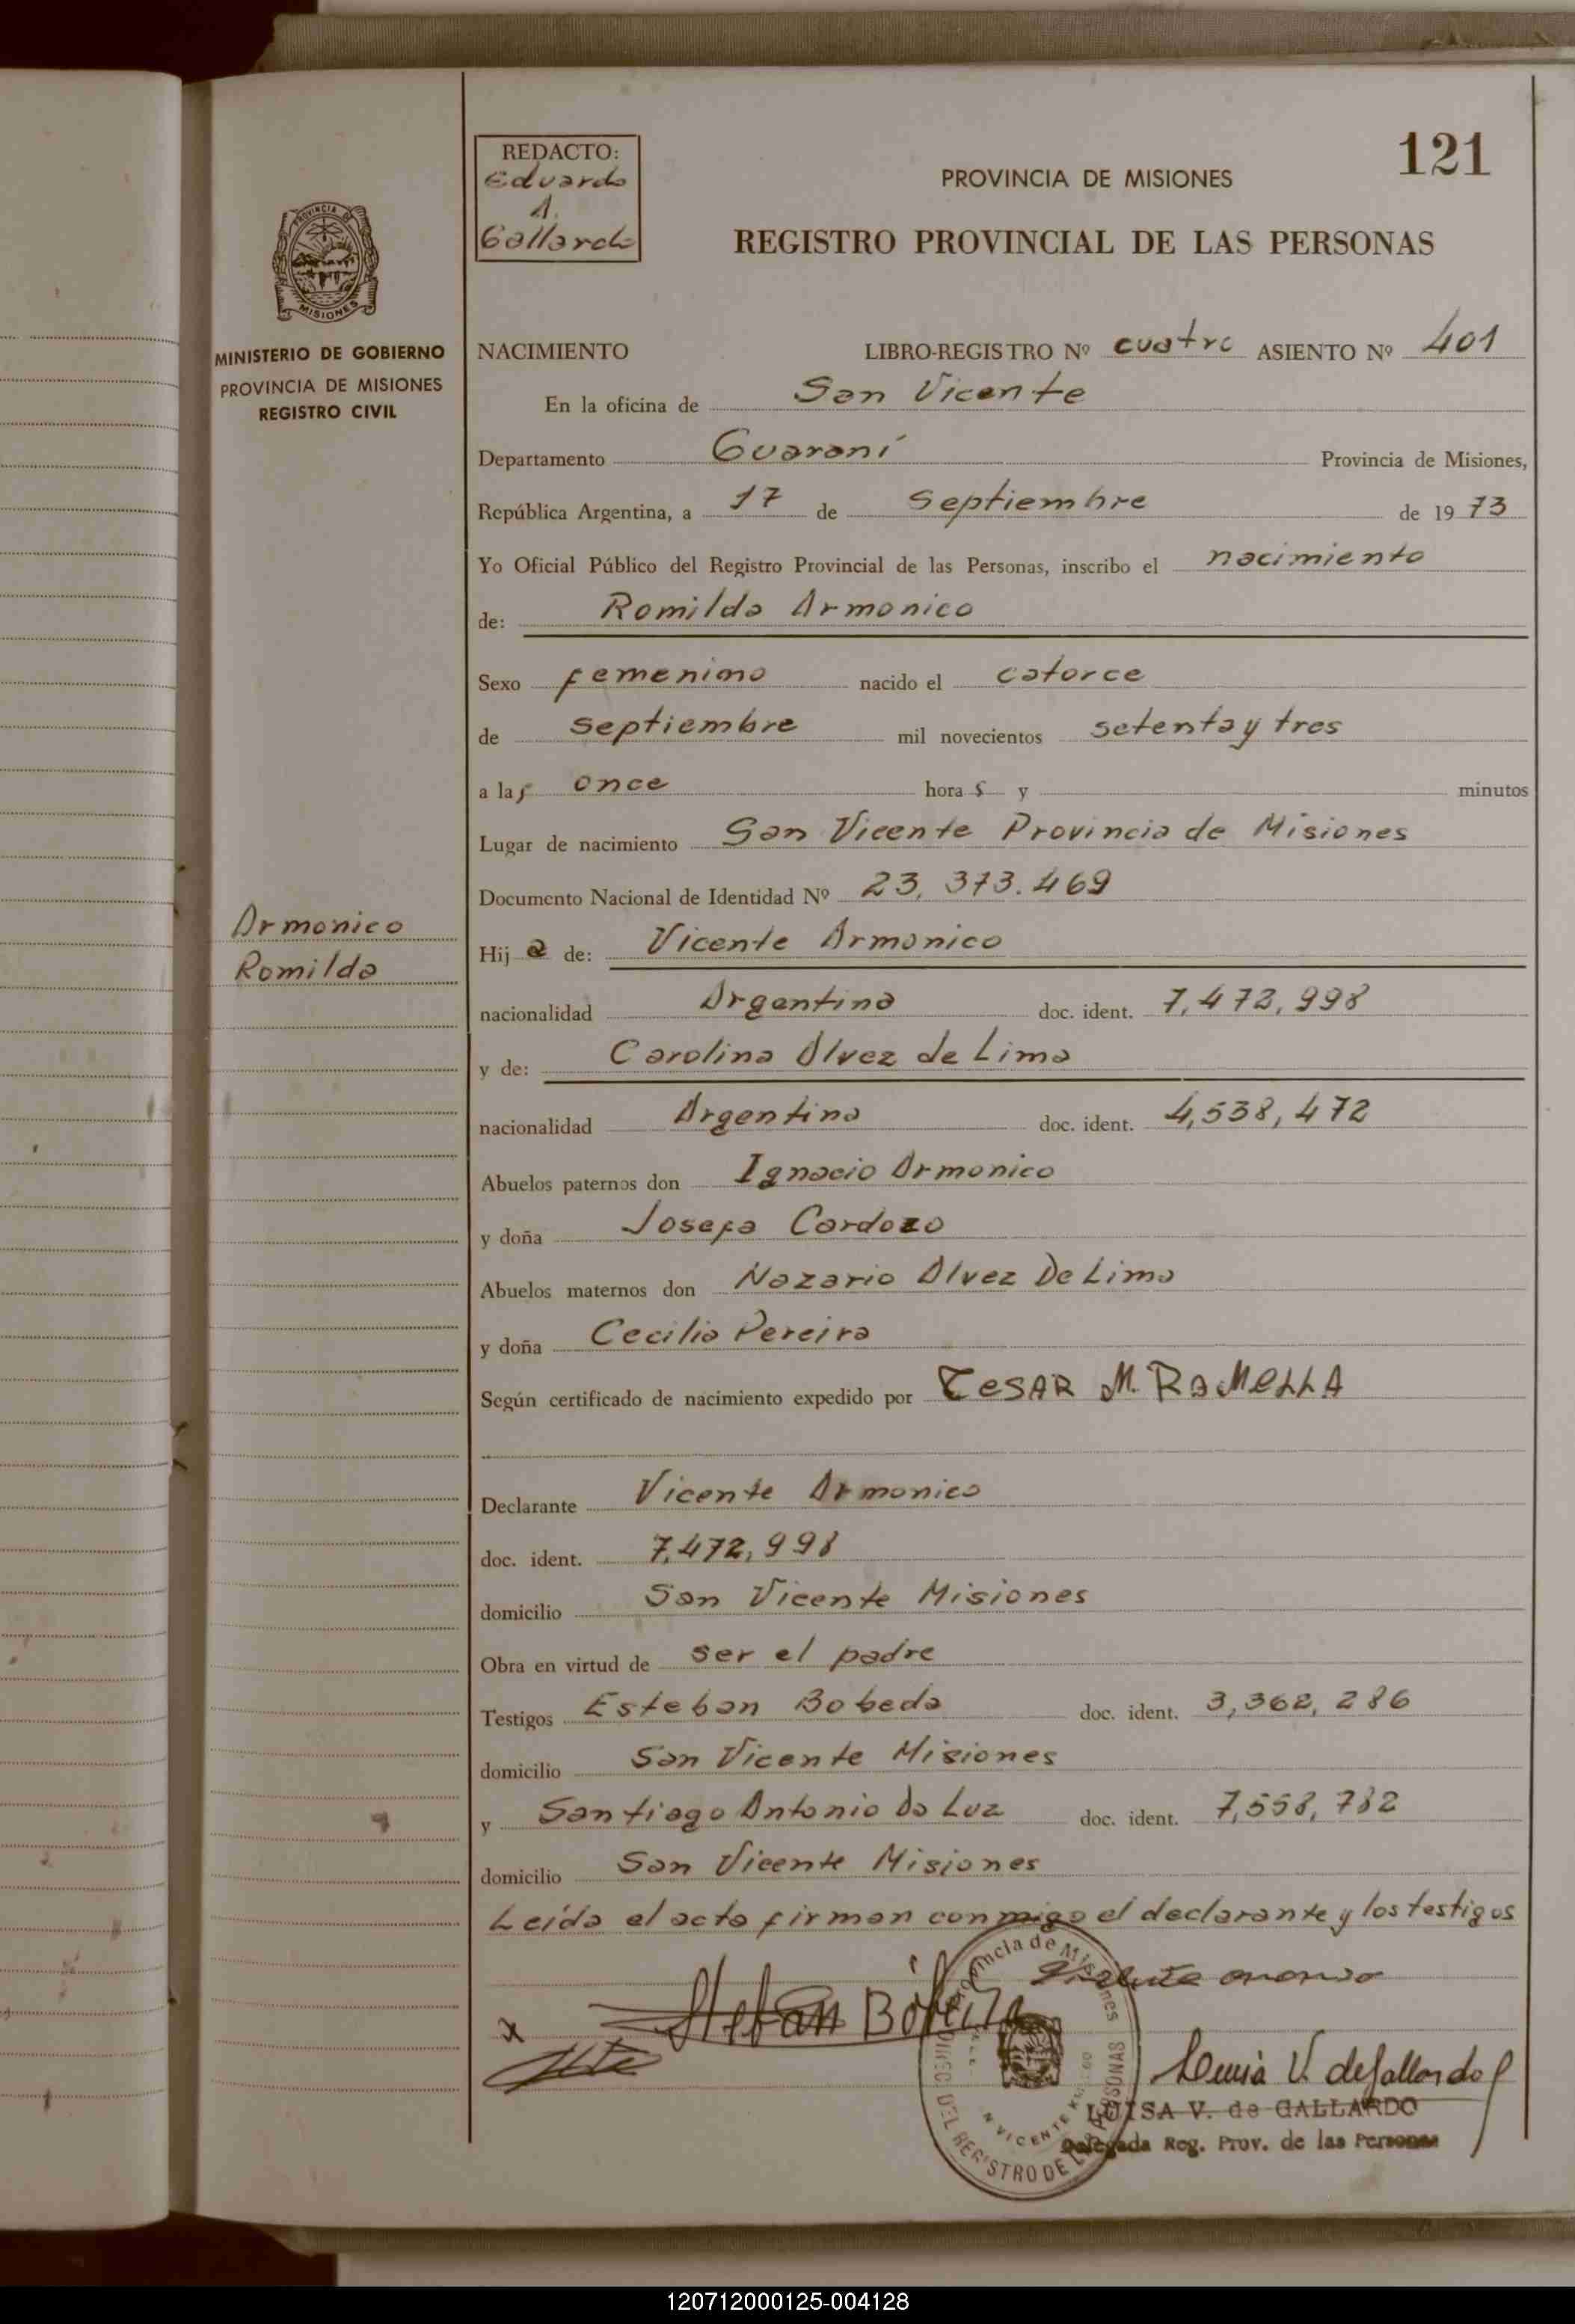 121
REDACTO:
Eduardo
A.
Gallardo
PROVINCIA DE MISIONES
REGISTRO PROVINCIAL DE LAS PERSONAS
PROVINCIA DE
MISIONES
MINISTERIO DE GOBIERNO
PROVINCIA DE MISIONES
REGISTRO CIVIL
NACIMIENTO LIBRO-REGISTRO Nº cuatro ASIENTO Nº 401
En la oficina de San Vicente
Departamento Guaraní Provincia de Misiones,
República Argentina, a 17 de septiembre de 1973
Yo Oficial Público del Registro Provincial de las Personas, inscribo el nacimiento
de: Romilda Armonico
Sexo femenino nacido el catorce
de septiembre mil novecientos setenta y tres
a las once horas y minutos
Lugar de nacimiento San Vicente Provincia de Misiones
Documento Nacional de Identidad Nº 23,373.469
Armonico
Romilda
Hija de: Vicente Armonico
nacionalidad Argentina doc. ident. 7,472,998
y de: Carolina Alvez de Lima
nacionalidad Argentina doc. ident. 4,538,472
Abuelos paternos don Ignacio Armonico
y doña Josefa Cardozo
Abuelos maternos don Nazario Alvez De Lima
y doña Cecilia Pereira
Según certificado de nacimiento expedido por CESAR M. RAMELLA
Declarante Vicente Armonico
doc. ident. 7,472,998
domicilio San Vicente Misiones
Obra en virtud de ser el padre
Testigos Esteban Bobeda doc. ident. 3,362,286
domicilio San Vicente Misiones
y Santiago Antonio Da Luz doc. ident. 7,558,782
domicilio San Vicente Misiones
Leída el acta firman conmigo el declarante y los testigos
Provincia de Misiones
DEL REGISTRO DE LAS PERSONAS
LUISA V. de GALLARDO
Delegada Reg. Prov. de las Personas
120712000125-004128